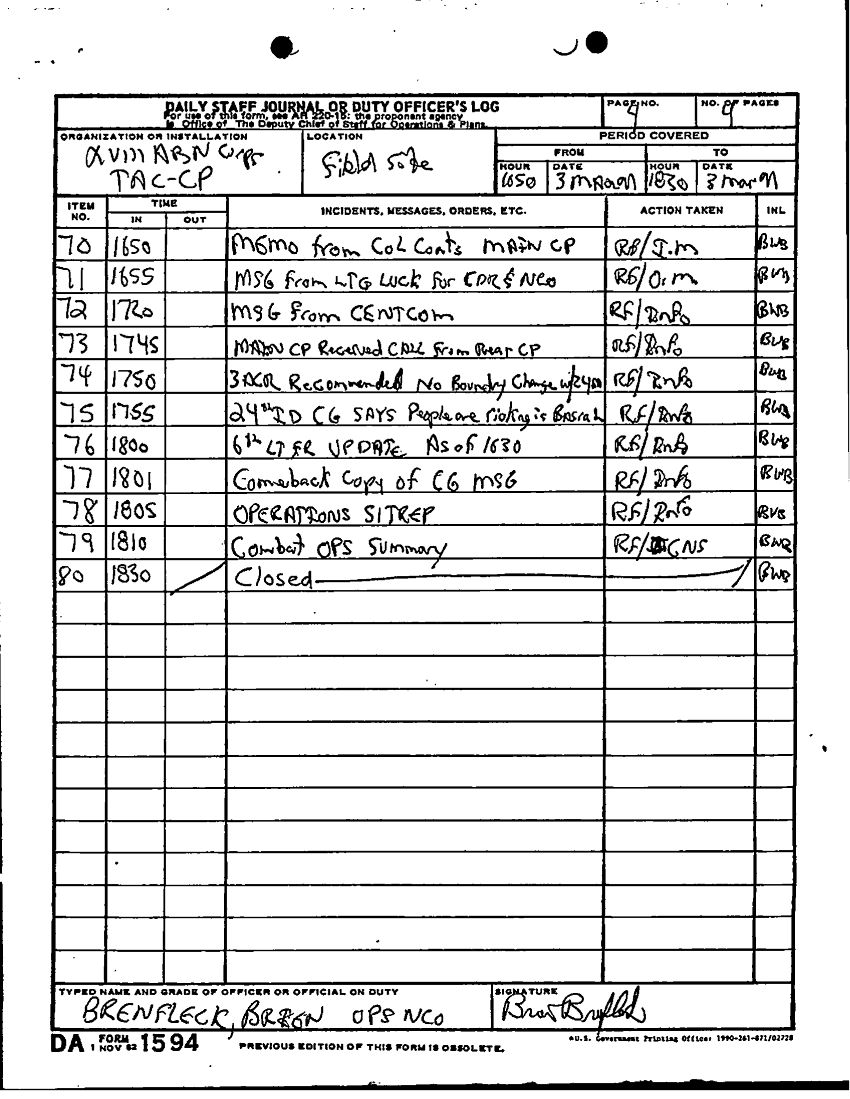 DAILY STAFF JOURNAL OR DUTY OFFICER'S LOG
For use of this form, see AR 220-15; the proponent agency
is Office of The Deputy Chief of Staff for Operations & Plans.
PAGE NO.
4
NO. OF PAGES
4
ORGANIZATION OR INSTALLATION
XVIII ABN Corps
TAC-CP
LOCATION
Field Site
PERIOD COVERED
FROM TO
HOUR DATE HOUR DATE
1650 3 Mar 91 1830 3 Mar 91
ITEM NO. TIME IN OUT INCIDENTS, MESSAGES, ORDERS, ETC. ACTION TAKEN INL
70 1650 MEMO from COL Coats MAIN CP RF/J.M BWB
71 1655 MSG from LTG LUCK for CDR & NCO RF/O.M BWB
72 1720 MSG From CENTCOM RF/Info BWB
73 1745 MAIN CP Received CALL From Rear CP RF/Info BWB
74 1750 3ACR Recommended No Boundry Change w/24ID RF/Info BWB
75 1755 24th ID CG SAYS People are rioting in Basrah RF/Info BWB
76 1800 6th LT FR UPDATE As of 1630 RF/Info BWB
77 1801 Comeback Copy of CG MSG RF/Info BWB
78 1805 OPERATIONS SITREP RF/Info BWB
79 1810 Combat OPS Summary RF/CNS BWB
80 1830 Closed BWB
TYPED NAME AND GRADE OF OFFICER OR OFFICIAL ON DUTY
BRENFLECK, BRIEN OPS NCO
SIGNATURE
DA FORM 1 NOV 62 1594
PREVIOUS EDITION OF THIS FORM IS OBSOLETE.
U.S. Government Printing Office: 1990-261-871/02728